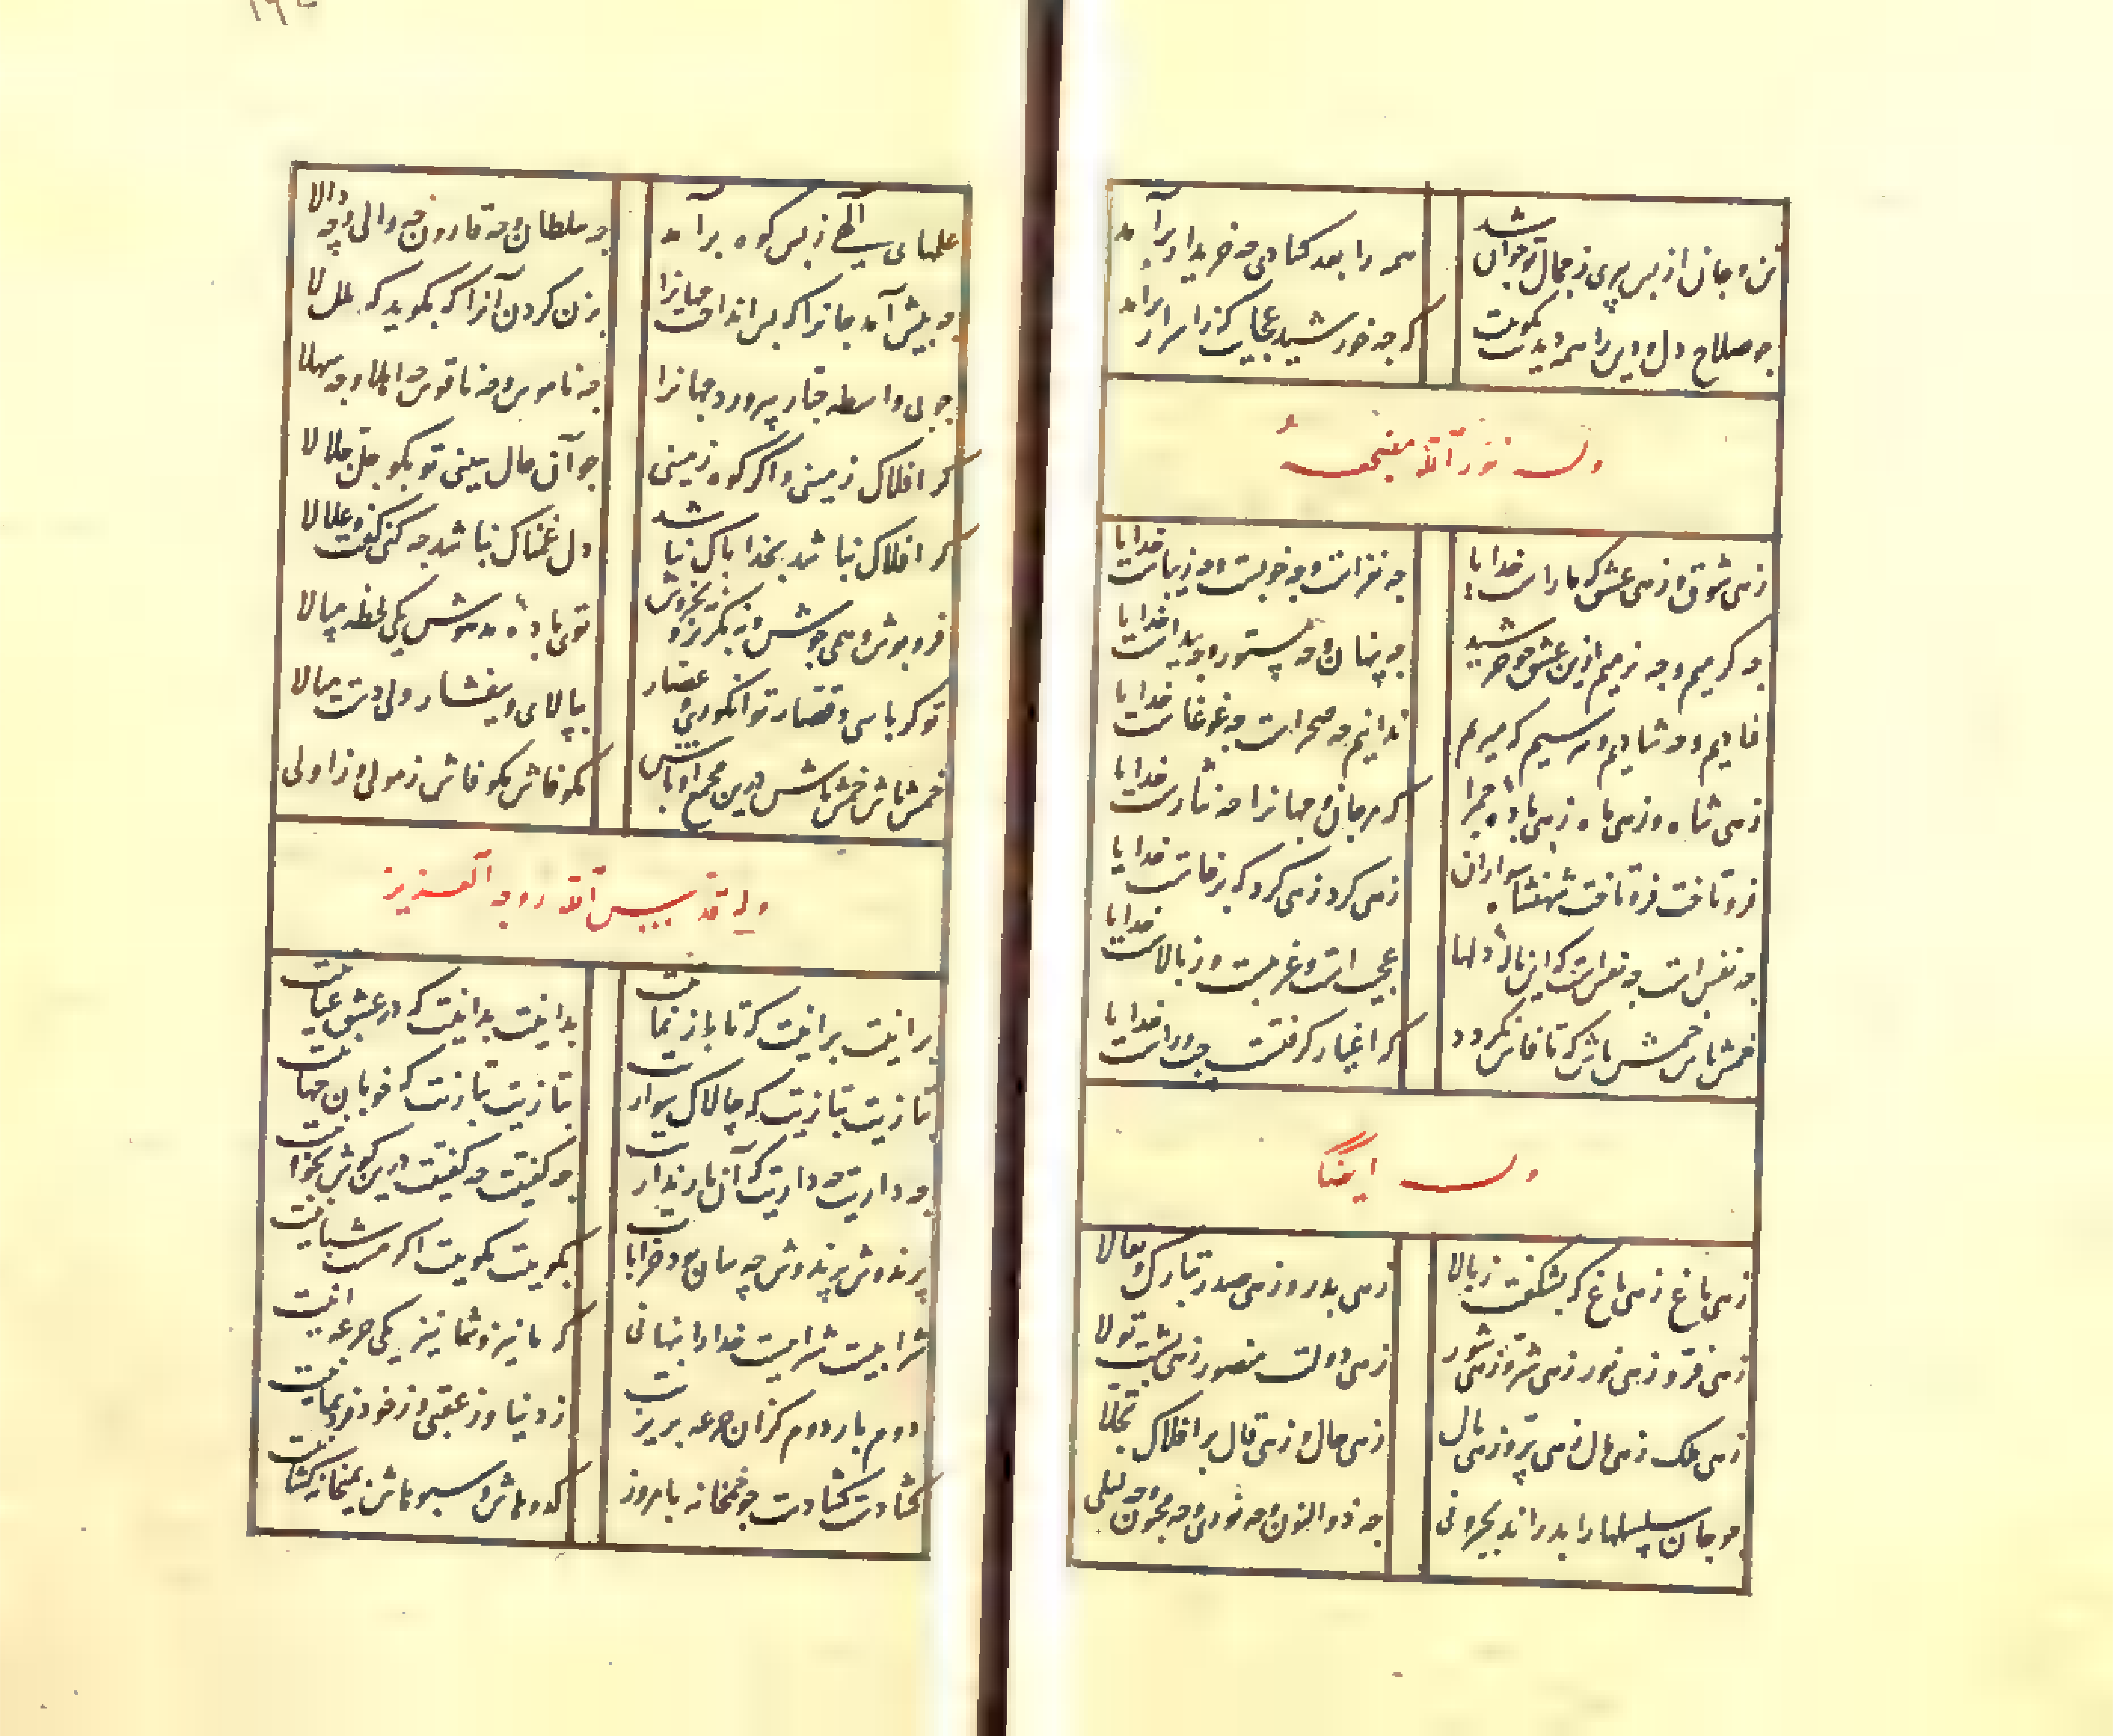 تن و جان از بس پیری ز جمال تو جوان شد
همه را بعد کسادی چه خریدار برآمد
چو صلاح دل و دین را همه دیدیت بگویت
که چه خورشید عجایب که ز اسرار برآمد
وله نور الله مضجعه
زهی شوق و زهی عشق که ما راست خدایا
چه نغزست و چه خوبست و چه زیباست خدایا
چه گرمیم و چه گرمیم ازین عشق چو خورشید
چه پنهان و چه مستور و چه پیداست خدایا
ندانیم چه صحراست چه غوغاست خدایا
زهی شاه و زهی ماه زهی بادهٔ حمرا
که هر جان و جهانرا چه نثارست خدایا
فروتافت فروتافت شهنشاه سواران
زهی کرد زهی کرد که برخاست خدایا
چه نغزست چه نغزست که این نالهٔ دلها
عجیبست و غریبست و ز بالاست خدایا
خمش باش خمش باش که تا فاش نکردد
که اغیار کرفتست چپ و راست خدایا
وله ایضا
زهی باغ زهی باغ که بشکفت ز بالا
زهی بدر و زهی صدر تبارک و تعالا
زهی فر و زهی نور زهی شر و زهی شور
زهی دولت منصور زهی پشت تولا
زهی ملک زهی مال زهی پر و زهی بال
زهی حال و زهی قال بر افلاک تجلا
چو جان سلسلها را بدراند بحرونی
چه ذوالنون و چه نوری و چه مجنون و چه لیلی
علمهای الهی ز پس کوه برآمد
چه سلطان و چه قارون چه والی و چه والا
چه پیش آمد جانرا که پس انداخت جهانرا
بزن کردن آنرا که بکوید که بللا
چو بی واسطه جبار بپرورد جهانرا
چه ناموس و چه ناقوس چه اهلا و چه سهلا
کر افلاک زمینی و اکر کوه زمینی
چو آن حال ببینی تو بکو جل جلالا
کر افلاک نباشد بخدا باک نباشد
دل غمناک نباشد چه کنی کفت و علالا
فروپوش و همی جوش نه بکریز و نه بخروش
توی بادهٔ مدهوش یکی لحظه بپالا
تو کرباسی و قصار تو انکوری و عصار
بپالای و بیفشار ولی دست میالا
خمش باش خمش باش درین مجمع اوباش
مکو فاش مکو فاش ز مولی و ز اولی
وله قدس الله روحه العزیز
برانیت برانیت که تا باز نمانیت
بدانیت بدانیت که در عشق عیانیت
بتازیت بتازیت که چالاک سواریت
بنازیت بنازیت که خوبان جهانیت
چه داریت چه داریت که آن یار نداریت
چه کفتیت چه کفتیت درین کوش بخوانیت
پرندوش پرندوش چه سان بود خرابات
بکویت بکویت اکر مست شبانیت
شرابیست شرابیست خدا را پنهانی
که ما نیز و شما نیز یکی جرعه آنیت
دوم بار دوم کز آن جرعه بریزیت
ز دنیا و ز عقبی و ز خود فرد بمانیت
کشادست کشادست چو خمخانه بامروز
کدو باش و سبو باش بمیخانه کشانیت